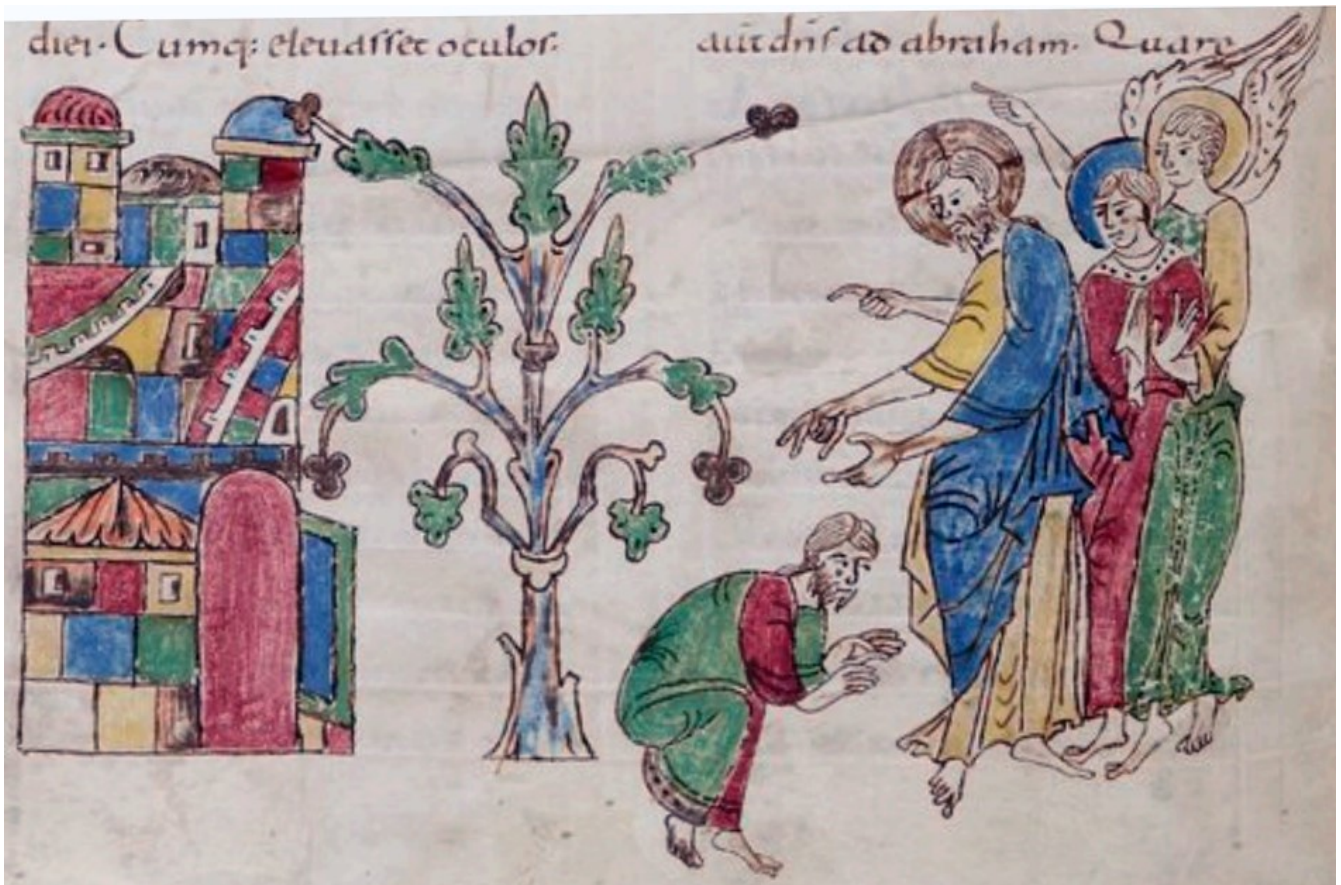 diei. Cumq: elevasset oculos.
aut dns ad abraham. Quare